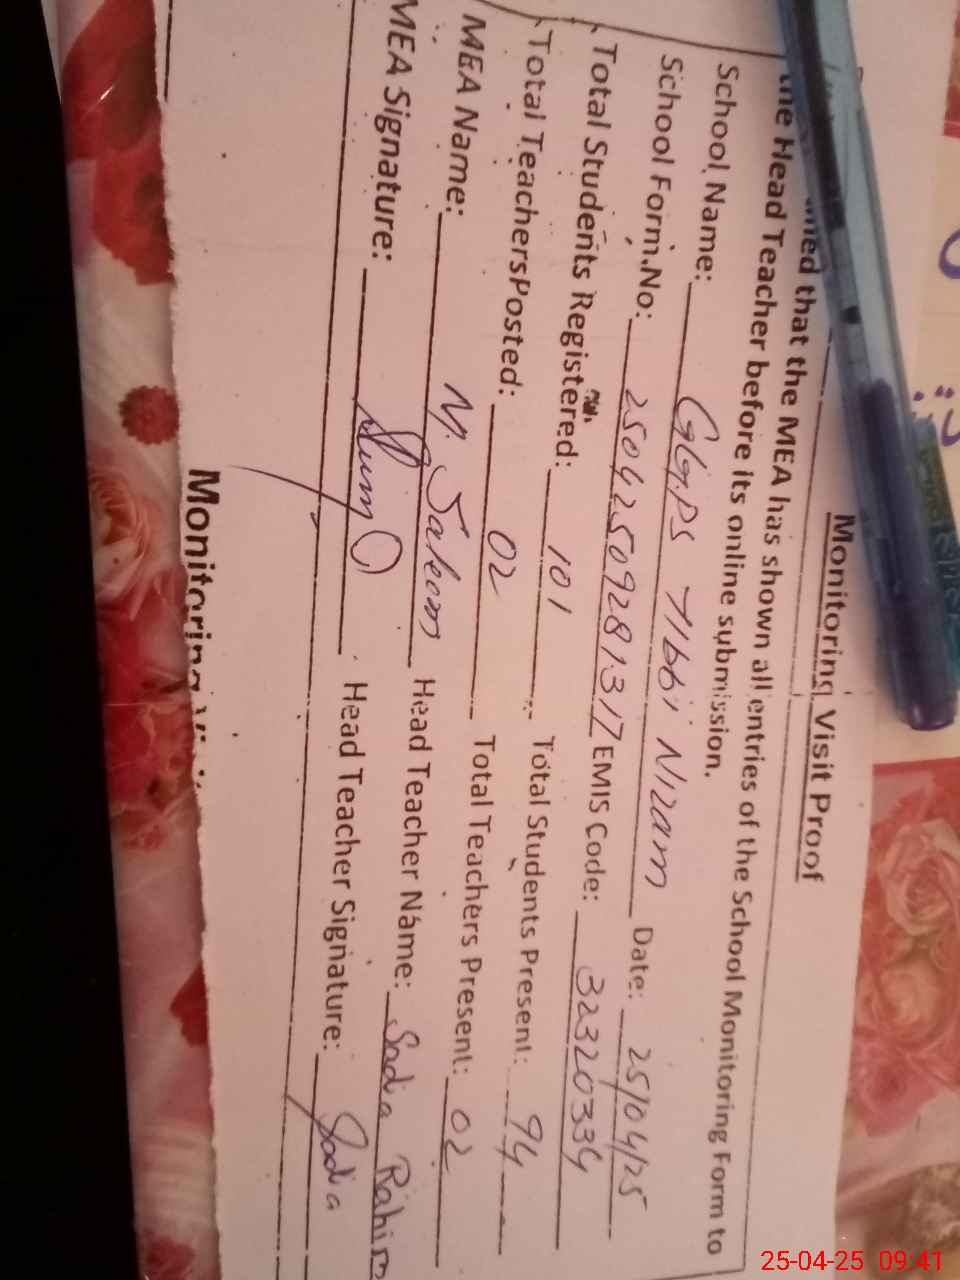 Monitoring Visit Proof
that the MEA has shown all entries of the School Monitoring Form to
the Head Teacher before its online submission.
School Name: GGPS Tibbi Nizam Date: 25/04/25
School Form.No: 25042509281317 EMIS Code: 32320334
Total Students Registered: 101 Total Students Present: 94
Total TeachersPosted: 02 Total Teachers Present: 02
MEA Name: M. Saleem Head Teacher Name: Sadia Rahim
MEA Signature: Head Teacher Signature: Sadia
Monitoring
25-04-25 09:41